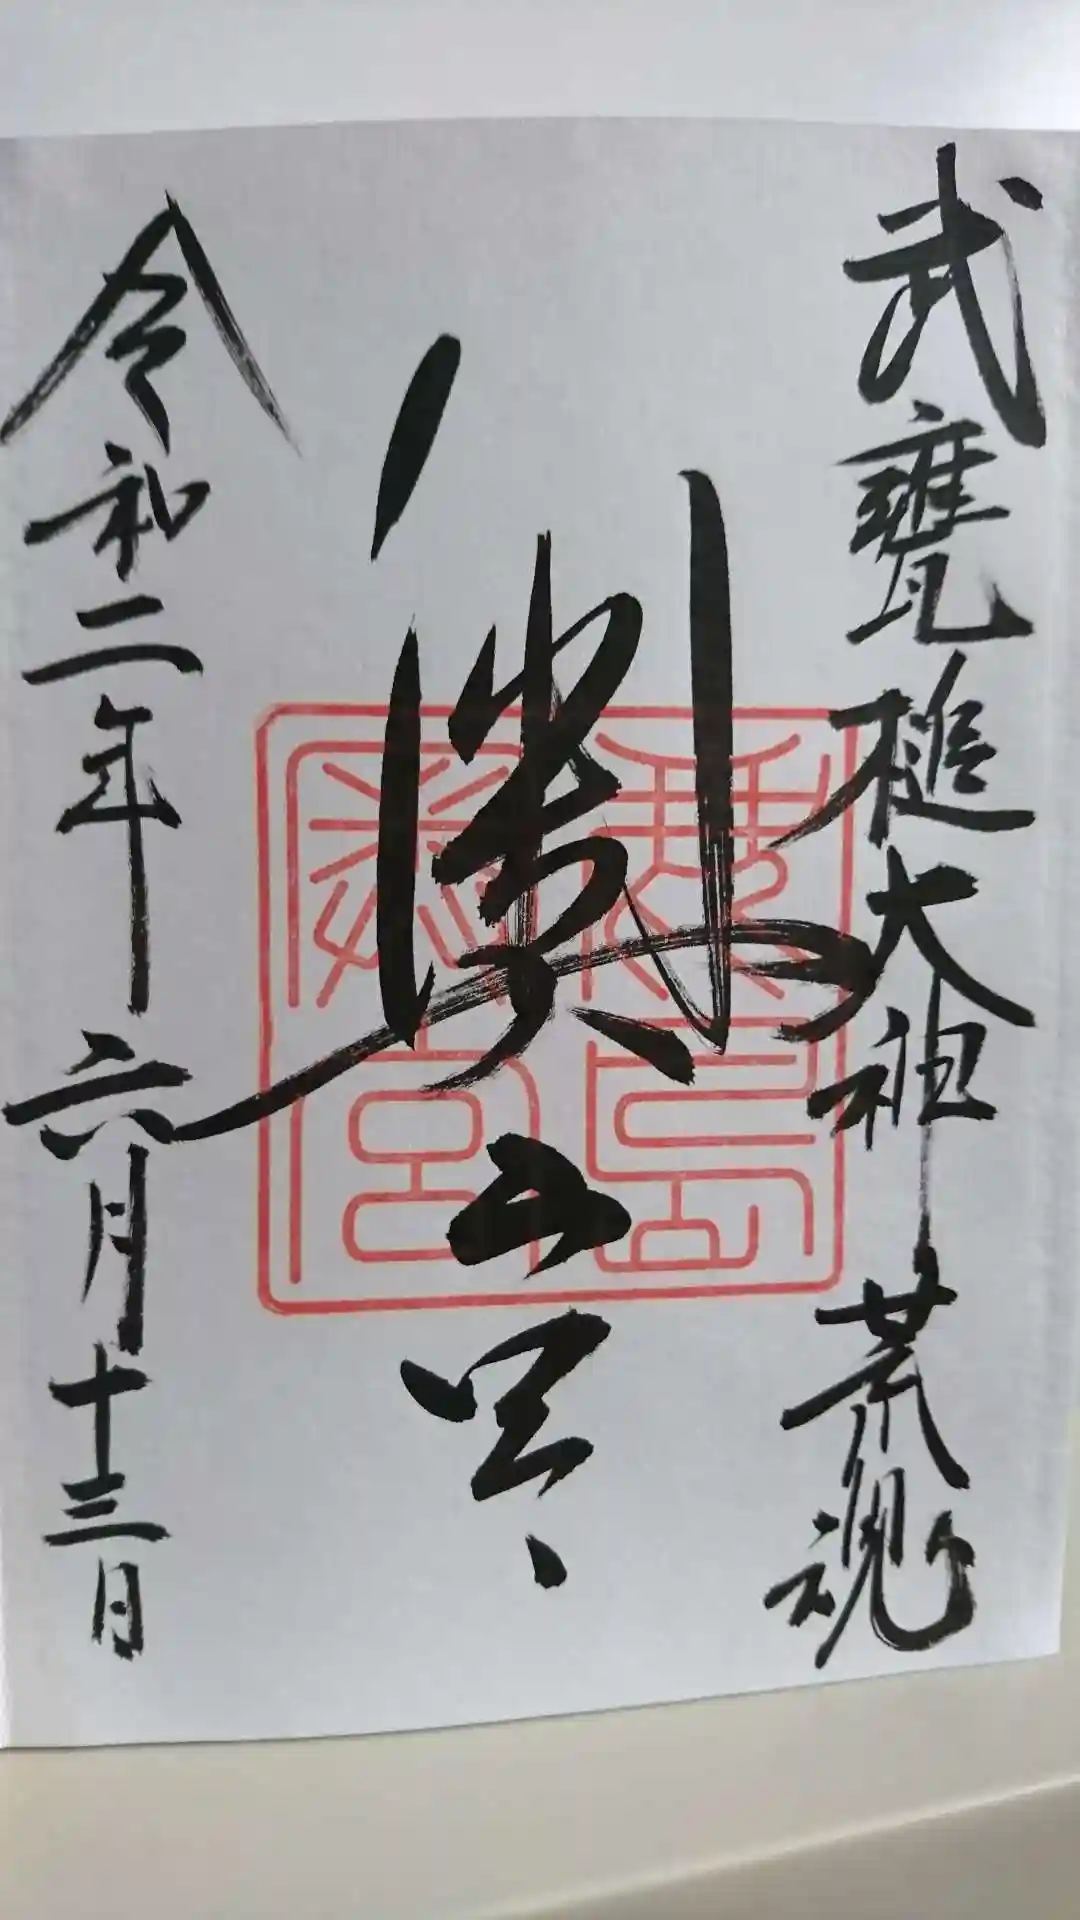 武甕槌大神 荒魂
奥宮
鹿島
奥宮
令和二年六月十三日